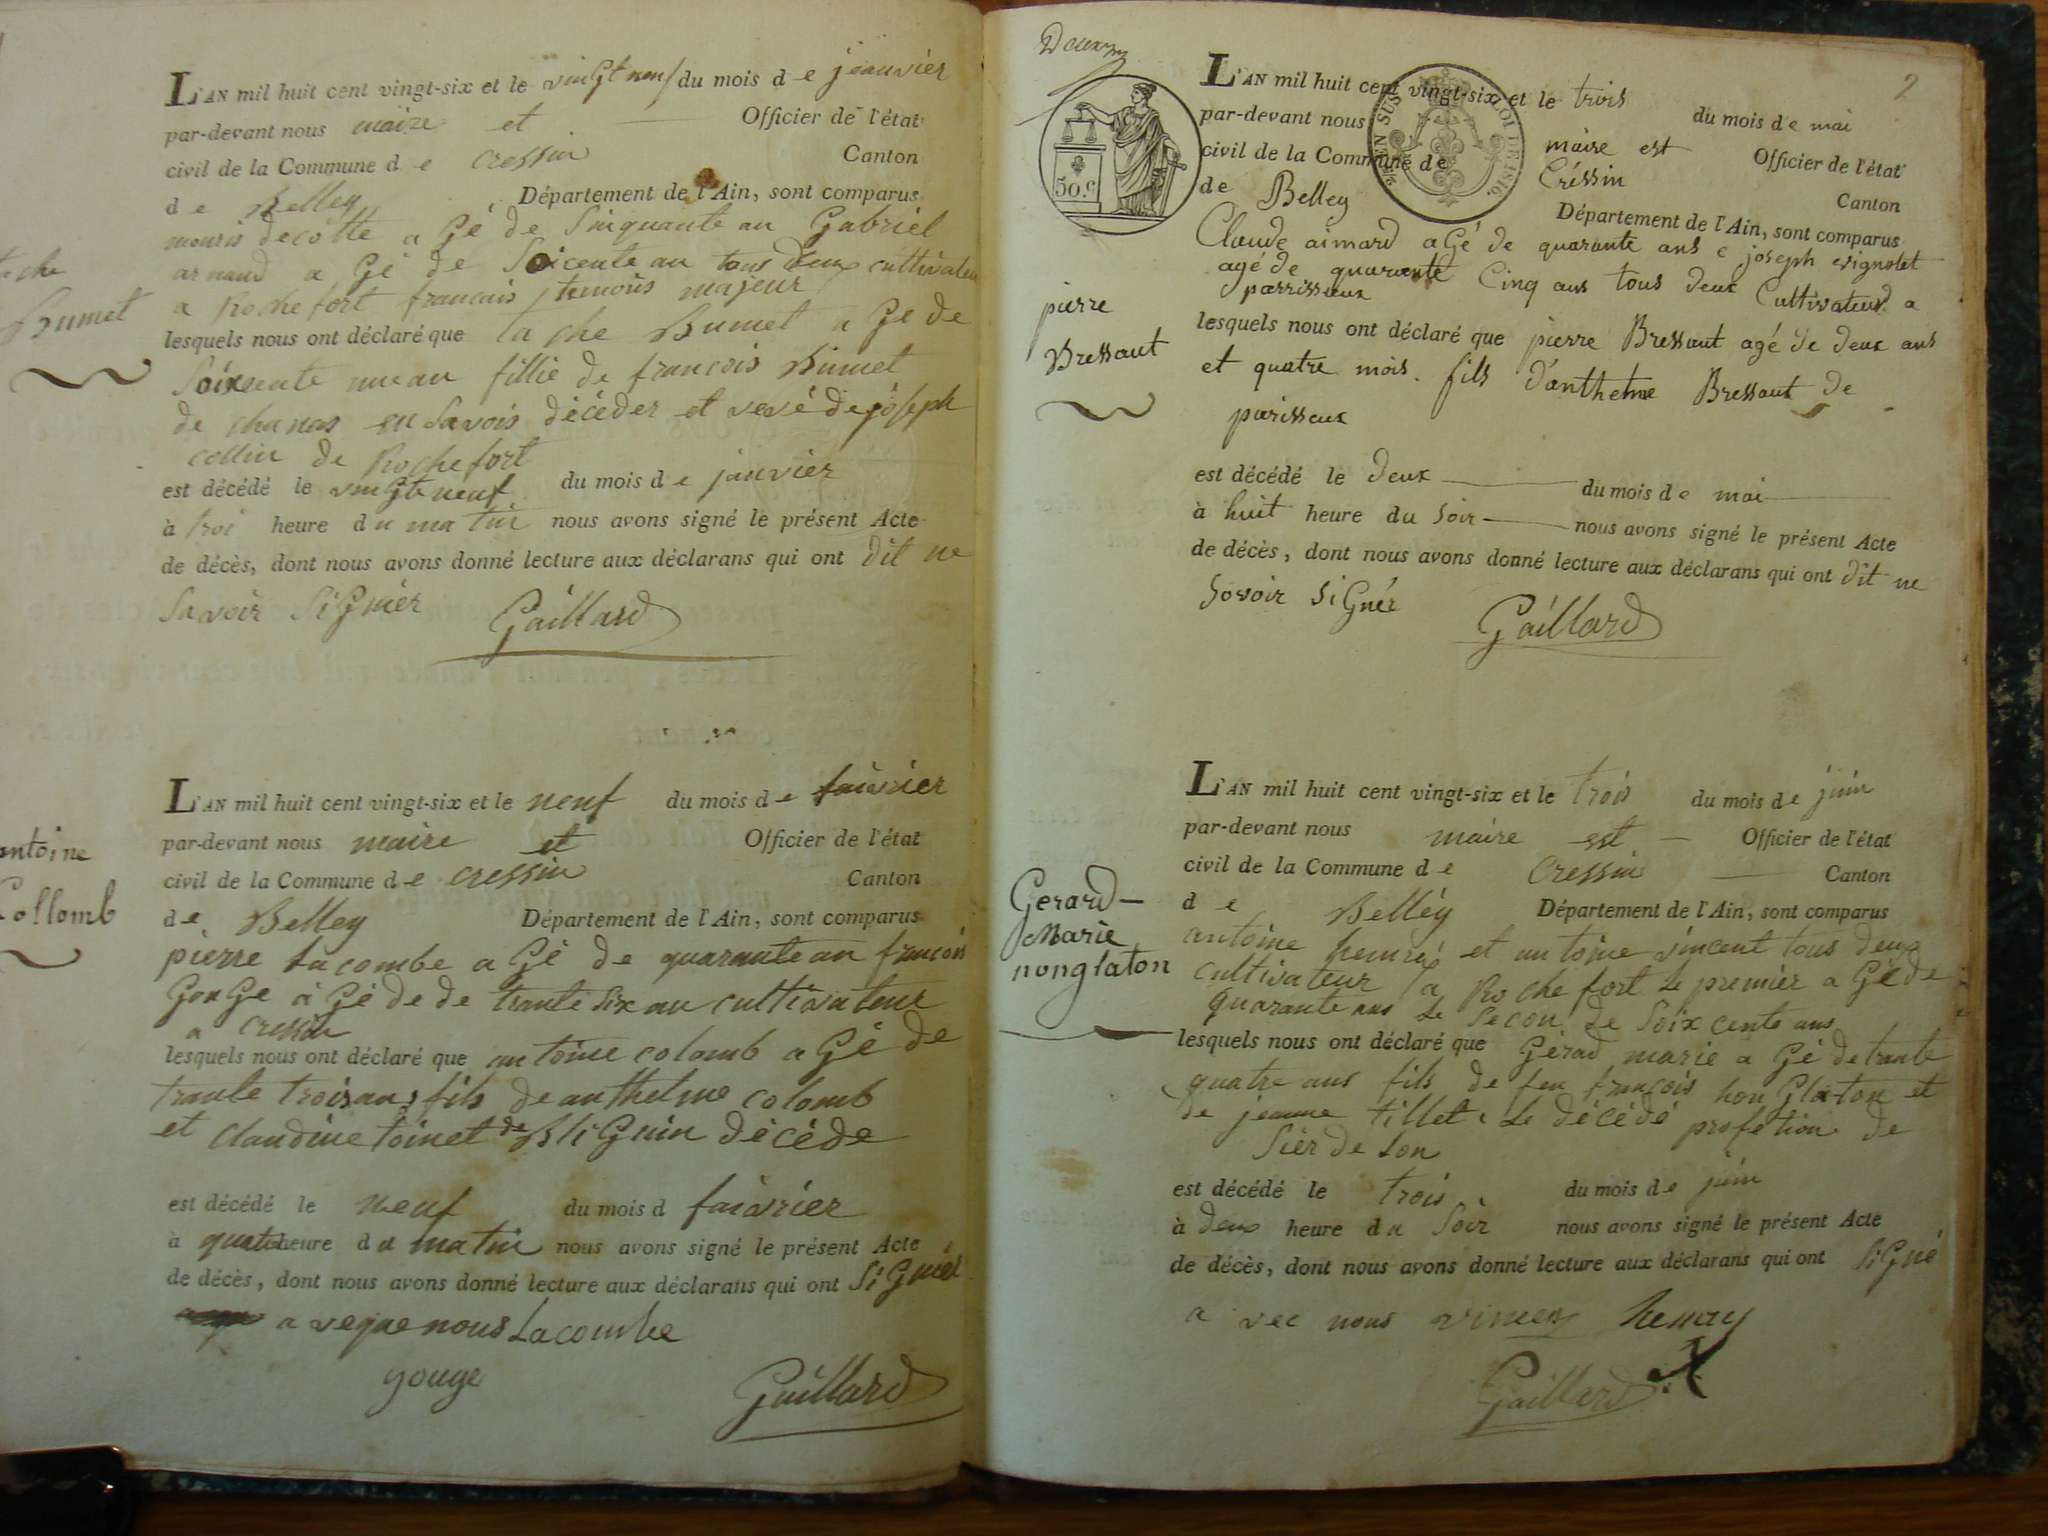 L'AN mil huit cent vingt-six et le vingt neuf du mois de jeanvier
par-devant nous maire et Officier de l'état
civil de la Commune de Cressin Canton
de Belley Département de l'Ain, sont comparus
mouris decotte a Gé de Sinquante an Gabriel
arnaud a Gé de Soicente an tous deux cultivateur
a Rochefort francais temoins majeur
tache
Bumet
lesquels nous ont déclaré que tache Bumet a Gé de
Soixsente un an fillie de francois Bumet
de chanas en Savois décéder et vevé de joseph
collin de Rochefort
est décédé le vingt neuf du mois de janvier
à troi heure du matin nous avons signé le présent Acte
de décès, dont nous avons donné lecture aux déclarans qui ont dit ne
Savoir Signier Gaillard
L'AN mil huit cent vingt-six et le neuf du mois de faivrier
par-devant nous maire et Officier de l'état
civil de la Commune de cressin Canton
antoine
Collomb
de Belley Département de l'Ain, sont comparus
pierre Lacombe a Gé de quarante an francois
GouGe a Gé de de trante Six an cultivateur
a cressin
lesquels nous ont déclaré que antoine colomb a Gé de
trante trois ans fils de anthelme colomb
et claudine toinet de BliGnin décéde
est décédé le neuf du mois d faivrier
à quatr heure du matin nous avons signé le présent Acte
de décès, dont nous avons donné lecture aux déclarans qui ont SiGnier
a veque nous Lacombe
gouge Gaillard
Deux
2
50.c
L'AN mil huit cent vingt-six et le trois du mois de mai
par-devant nous maire est Officier de l'état
civil de la Commune de Créssin Canton
de Belley Département de l'Ain, sont comparus
LOI DE 1816
Claude aimard aGé de quarante ans e joseph vignolet
agé de quarante Cinq ans tous deux Cultivateur a
parrisseux
pierre
Bressaut
lesquels nous ont déclaré que pierre Bressaut agé de deux ans
et quatre mois. fils d'anthelme Bressaut de
parisseux
est décédé le deux du mois de mai
à huit heure du Soir nous avons signé le présent Acte
de décès, dont nous avons donné lecture aux déclarans qui ont dit ne
Sovoir SiGnér Gaillard
L'AN mil huit cent vingt-six et le trois du mois de juin
par-devant nous maire est Officier de l'état
civil de la Commune de Cressin Canton
Gerard
Marie
nonglaton
de Belléy Département de l'Ain, sont comparus
antoine henrri et antoine vincent tous deux
cultivateur a Rochefort Le premier a Gé de
quarante ans Le Secon de Soixcente ans
lesquels nous ont déclaré que Gérad marie a Gé de trante
quatre ans fils de feu francois honGlaton et
de jeanne tillet Le décédé profetion de
Sier de Lon
est décédé le trois du mois de juin
à deux heure du Soir nous avons signé le présent Acte
de décès, dont nous avons donné lecture aux déclarans qui ont SiGné
a vec nous vincen henry
Gaillard